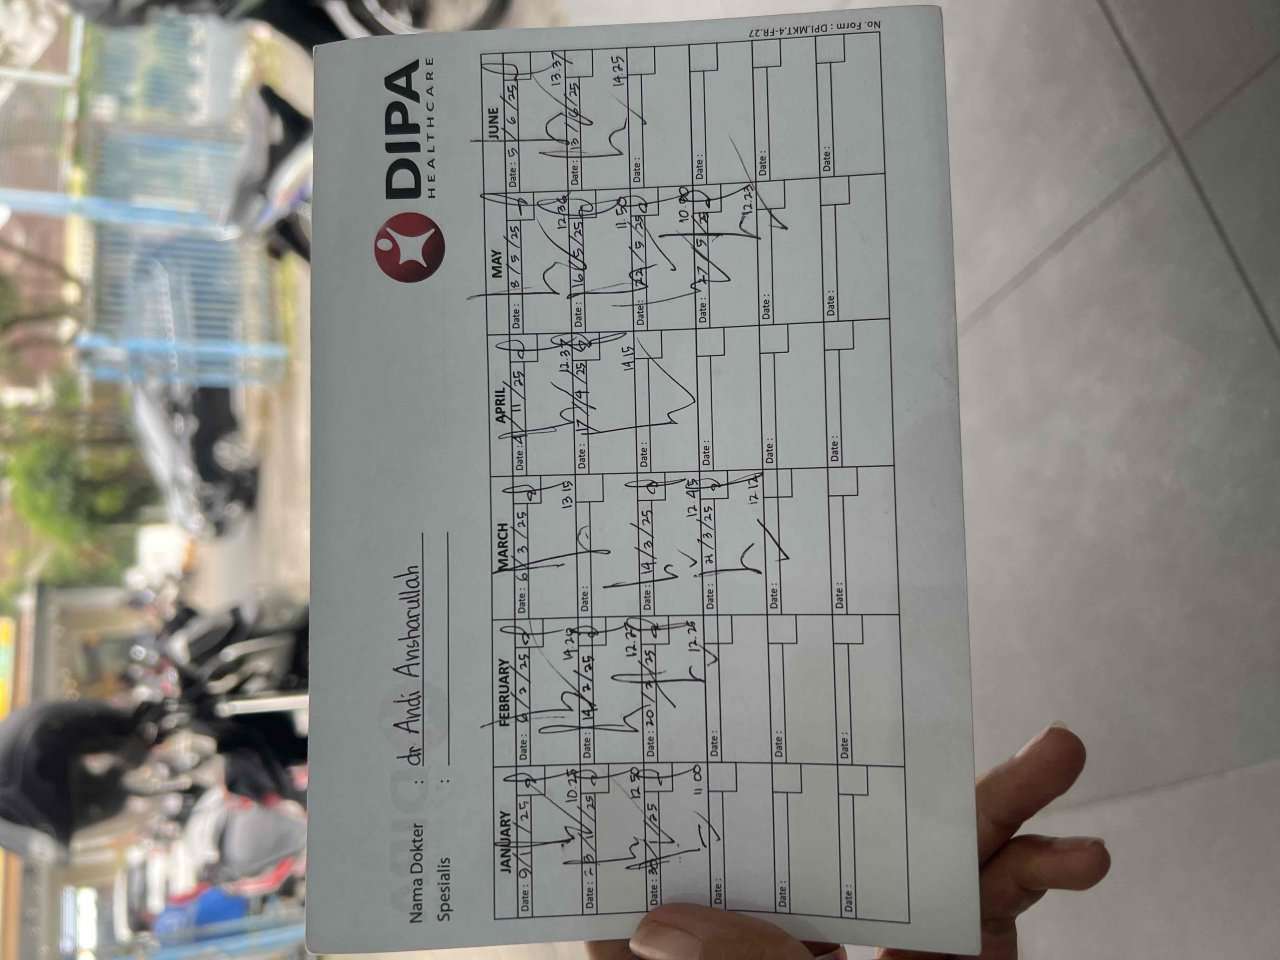 DIPA
HEALTHCARE
Nama Dokter : dr Andi Ansharullah
Spesialis :
JANUARY FEBRUARY MARCH APRIL MAY JUNE
Date: 9/1/25 Date: 6/2/25 Date: 6/3/25 Date: 11/25 Date: 8/5/25 Date: 5/6/25
10.25 14.29 13.15 12.37 12.36 13.37
Date: 23/1/25 Date: 14/2/25 Date: Date: 17/4/25 Date: 16/5/25 Date: 13/6/25
12.50 12.27 14.15 11.50 14.25
Date: 30/1/25 Date: 20/2/25 Date: 14/3/25 Date: Date: 22/5/25 Date:
11.00 12.26 12.45 10.00
Date: Date: Date: 21/3/25 Date: Date: 27/5/25 Date:
12.12 12.23
Date: Date: Date: Date: Date: Date:
Date: Date: Date: Date: Date: Date:
No. Form : DPI.MKT.4-FR.27